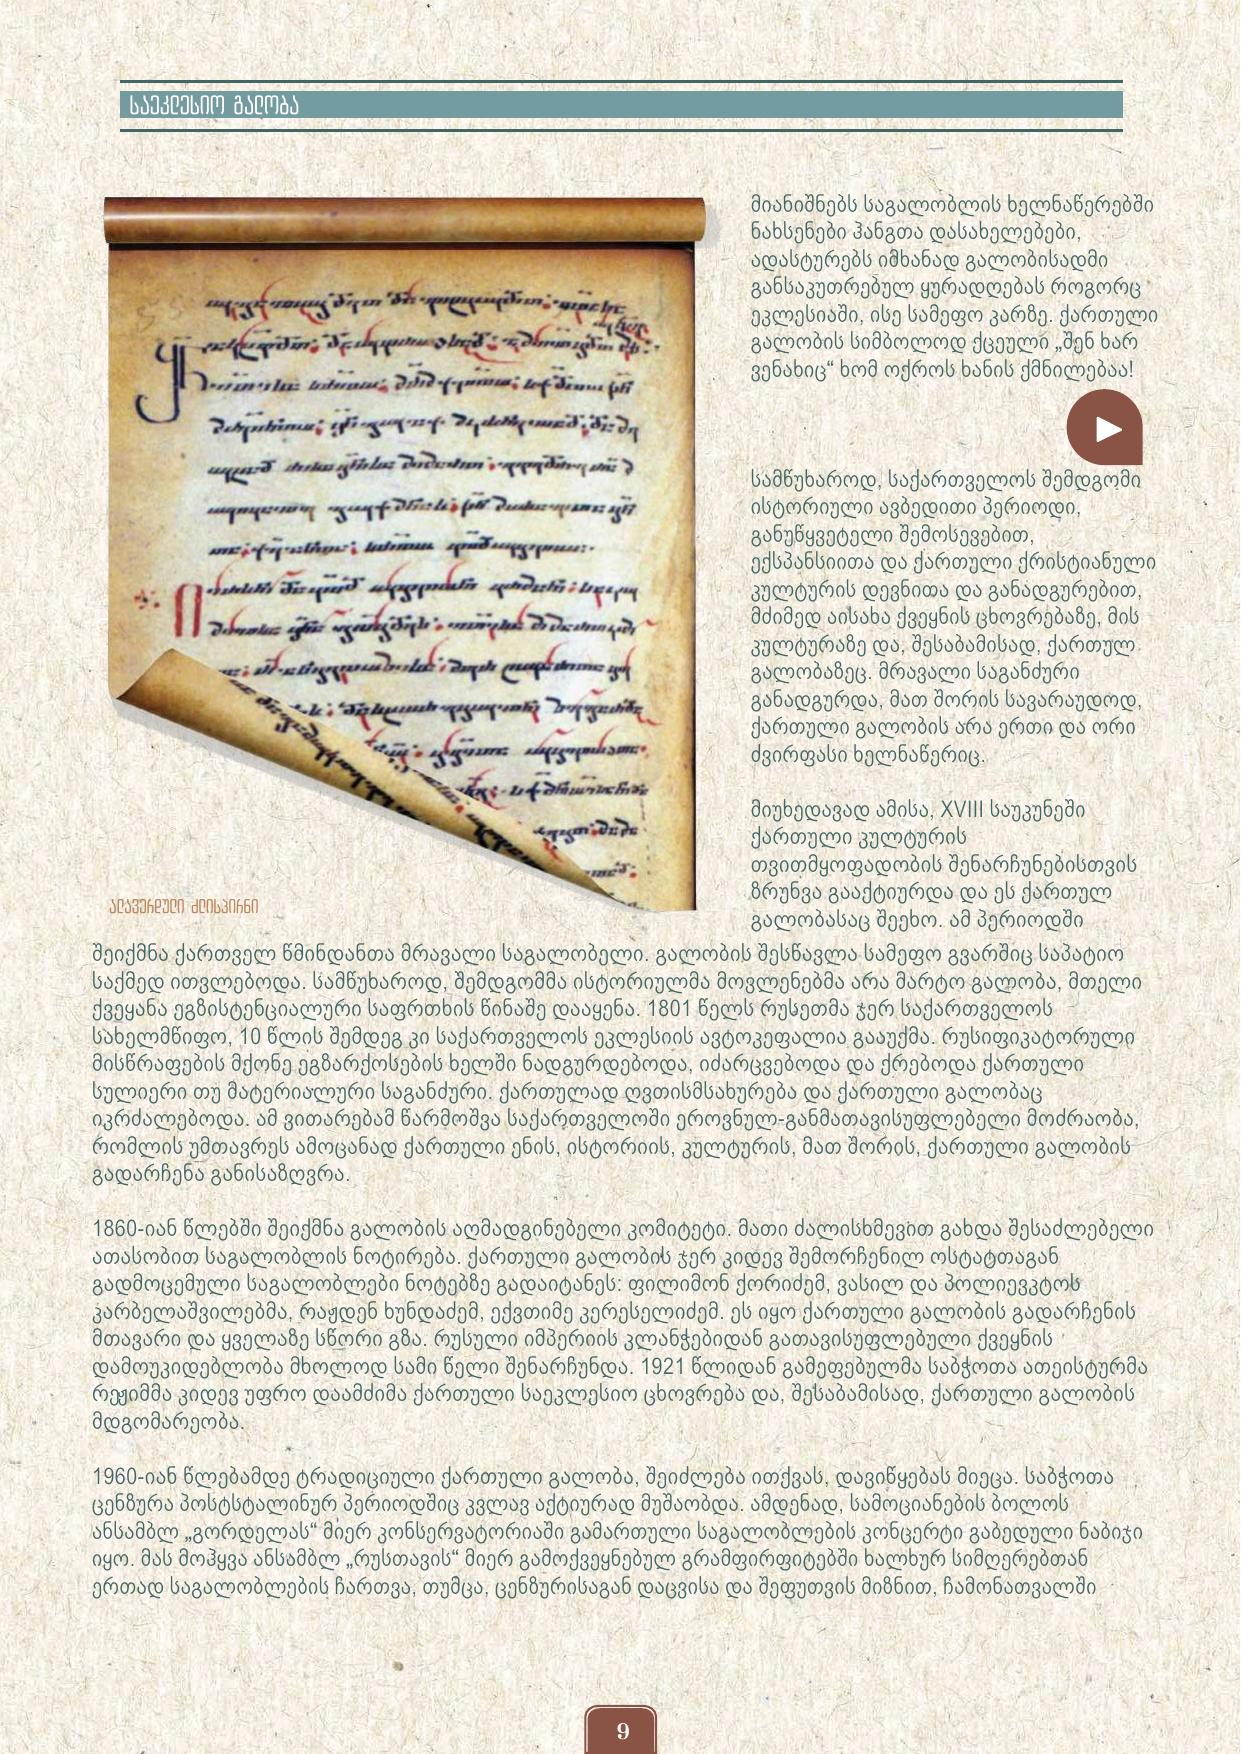 საეკლესიო გალობა
მიანიშნებს საგალობლის ხელნაწერებში
ნახსენები ჰანგთა დასახელებები,
ადასტურებს იმხანად გალობისადმი
განსაკუთრებულ ყურადღებას როგორც
ეკლესიაში, ისე სამეფო კარზე. ქართული
გალობის სიმბოლოდ ქცეული „შენ ხარ
ვენახიც“ ხომ ოქროს ხანის ქმნილებაა!
სამწუხაროდ, საქართველოს შემდგომი
ისტორიული ავბედითი პერიოდი,
განუწყვეტელი შემოსევებით,
ექსპანსიითა და ქართული ქრისტიანული
კულტურის დევნითა და განადგურებით,
მძიმედ აისახა ქვეყნის ცხოვრებაზე, მის
კულტურაზე და, შესაბამისად, ქართულ
გალობაზეც. მრავალი საგანძური
განადგურდა, მათ შორის სავარაუდოდ,
ქართული გალობის არა ერთი და ორი
ძვირფასი ხელნაწერიც.
მიუხედავად ამისა, XVIII საუკუნეში
ქართული კულტურის
თვითმყოფადობის შენარჩუნებისთვის
ზრუნვა გააქტიურდა და ეს ქართულ
გალობასაც შეეხო. ამ პერიოდში
ალავერდული ძლისპირნი
შეიქმნა ქართველ წმინდანთა მრავალი საგალობელი. გალობის შესწავლა სამეფო გვარშიც საპატიო
საქმედ ითვლებოდა. სამწუხაროდ, შემდგომმა ისტორიულმა მოვლენებმა არა მარტო გალობა, მთელი
ქვეყანა ეგზისტენციალური საფრთხის წინაშე დააყენა. 1801 წელს რუსეთმა ჯერ საქართველოს
სახელმწიფო, 10 წლის შემდეგ კი საქართველოს ეკლესიის ავტოკეფალია გააუქმა. რუსიფიკატორული
მისწრაფების მქონე ეგზარქოსების ხელში ნადგურდებოდა, იძარცვებოდა და ქრებოდა ქართული
სულიერი თუ მატერიალური საგანძური. ქართულად ღვთისმსახურება და ქართული გალობაც
იკრძალებოდა. ამ ვითარებამ წარმოშვა საქართველოში ეროვნულ-განმათავისუფლებელი მოძრაობა,
რომლის უმთავრეს ამოცანად ქართული ენის, ისტორიის, კულტურის, მათ შორის, ქართული გალობის
გადარჩენა განისაზღვრა.
1860-იან წლებში შეიქმნა გალობის აღმადგინებელი კომიტეტი. მათი ძალისხმევით გახდა შესაძლებელი
ათასობით საგალობლის ნოტირება. ქართული გალობის ჯერ კიდევ შემორჩენილ ოსტატთაგან
გადმოცემული საგალობლები ნოტებზე გადაიტანეს: ფილიმონ ქორიძემ, ვასილ და პოლიევკტოს
კარბელაშვილებმა, რაჟდენ ხუნდაძემ, ექვთიმე კერესელიძემ. ეს იყო ქართული გალობის გადარჩენის
მთავარი და ყველაზე სწორი გზა. რუსული იმპერიის კლანჭებიდან გათავისუფლებული ქვეყნის
დამოუკიდებლობა მხოლოდ სამი წელი შენარჩუნდა. 1921 წლიდან გამეფებულმა საბჭოთა ათეისტურმა
რეჟიმმა კიდევ უფრო დაამძიმა ქართული საეკლესიო ცხოვრება და, შესაბამისად, ქართული გალობის
მდგომარეობა.
1960-იან წლებამდე ტრადიციული ქართული გალობა, შეიძლება ითქვას, დავიწყებას მიეცა. საბჭოთა
ცენზურა პოსტსტალინურ პერიოდშიც კვლავ აქტიურად მუშაობდა. ამდენად, სამოციანების ბოლოს
ანსამბლ „გორდელას“ მიერ კონსერვატორიაში გამართული საგალობლების კონცერტი გაბედული ნაბიჯი
იყო. მას მოჰყვა ანსამბლ „რუსთავის“ მიერ გამოქვეყნებულ გრამფირფიტებში ხალხურ სიმღერებთან
ერთად საგალობლების ჩართვა, თუმცა, ცენზურისაგან დაცვისა და შეფუთვის მიზნით, ჩამონათვალში
9